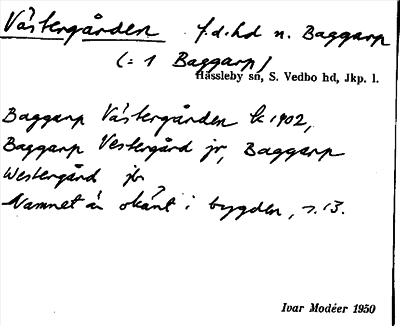 Västergården f.d. hd n. Baggarp
(= 1 Baggarp)
Hässleby sn, S. Vedbo hd, Jkp. l.
Baggarp Västergården 1902,
Baggarp Vestergård jr, Baggarp
Westergård jb
Namnet är okänt i bygden, s. 13.
Ivar Modéer 1950